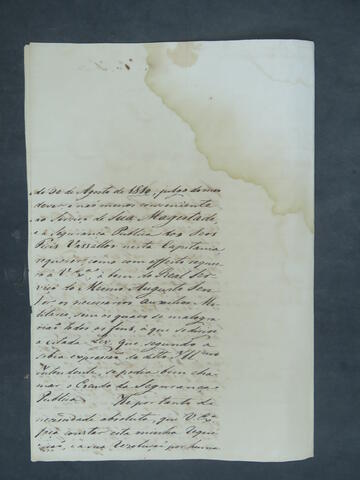 de 30 de Agosto de 1810, julgo do meu
dever, e não menos conveniente
ao Serviço de Sua Magestade,
e a Segurança Publica dos Seos
Fieis Vassallos nesta Capitania
requerer, como com effeito requei-
ro a V. Ex.ª, a bem do Real Ser-
viço do Mesmo Augusto Senr.
os necessarios Auxilios Mi-
litares, sem os quaes se malogra-
rião todos os fins, a que se dirige
a citada Lei, que segundo a
sabia expressão da Lettra
intendente se podia bem cha-
mar o Escudo da Segurança
Publica. He por tanto da
necessidade absoluta, que V. Ex.ª
faça constar esta minha Requi-
sição, e a sua Resolução por huma